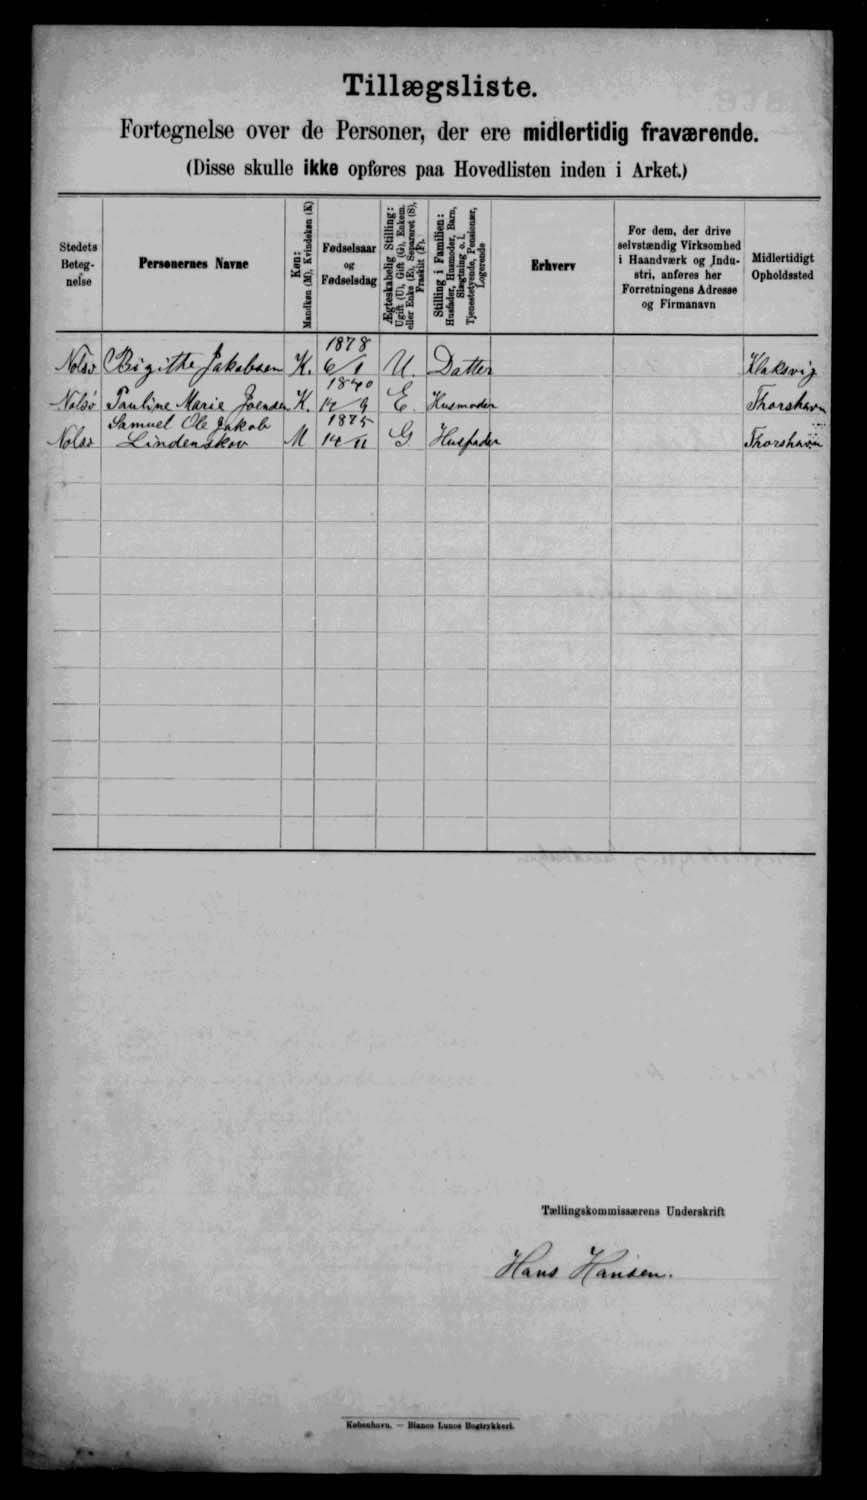 Tillægsliste.
Fortegnelse over de Personer, der ere midlertidig fraværende.
(Disse skulle ikke opføres paa Hovedlisten inden i Arket.)
Stedets Beteg- nelse
Personernes Navne
Køn: Mandkøn (M), Kvindekøn (K)
Fødselsaar og Fødselsdag
Ægteskabelig Stilling: Ugift (U), Gift (G), Enkem. eller Enke (E), Separeret (S), Fraskilt (F).
Stilling i Familien: Husfader, Husmoder, Barn, Slægtning o. l. Tjenestetyende, Pensionær, Logerende
Erhverv
For dem, der drive selvstændig Virksomhed i Haandværk og Indu- stri, anføres her Forretningens Adresse og Firmanavn
Midlertidigt Opholdssted
1878
Nolsø Birgithe Jakobsen K. 6/1 U. Datter Klaksvig
1840
Nolsø Pauline Marie Joensen K. 14/9 E. Husmoder Thorshavn
Samuel Ole Jakob 1875
Nolsø Lindenskov M 14/11 G Husfader Thorshavn
Tællingskommissærens Underskrift
Hans Hansen.
København. — Bianco Lunos Bogtrykkeri.